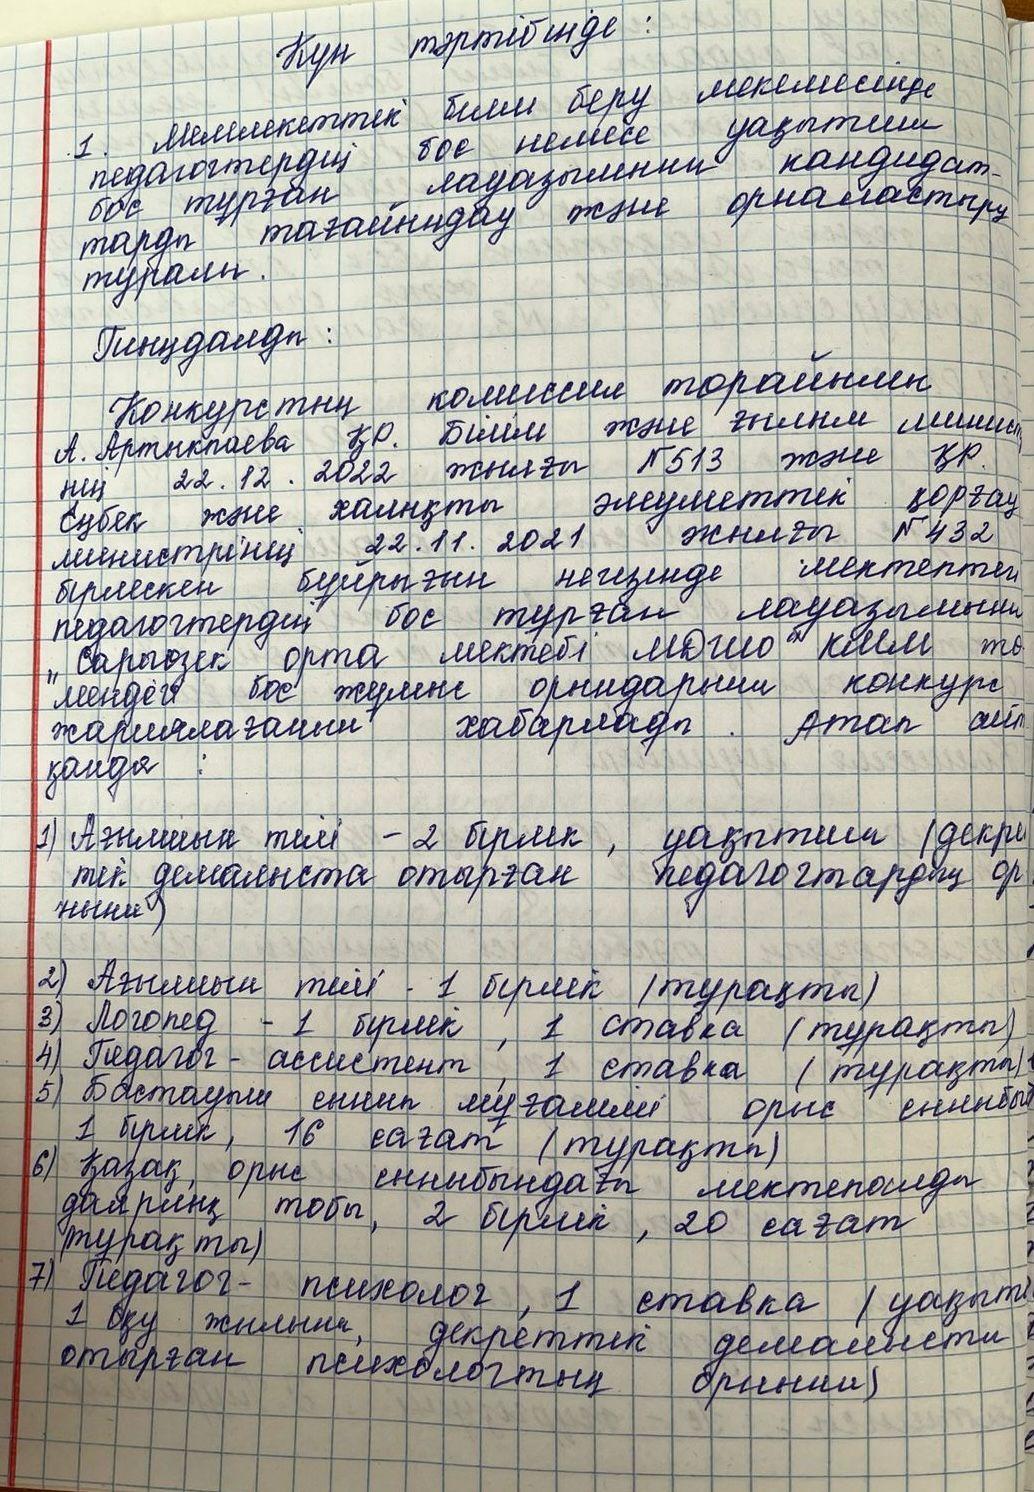 Күн тәртібінде :
1. Мемлекеттік білім беру мекемесінде
педагогтердің бос немесе уақытша
бос тұрған лауазымына кандидат-
тарды тағайындау және орналастыру
туралы.
Тыңдалды :
Конкурстың комиссия төрайымы
А. Артыкпаева ҚР. Білім және ғылым минист
нің 22.12.2022 жылғы №513 және ҚР.
Еңбек және халықты әлеуметтік қорғау
министрінің 22.11.2021 жылғы №432
бірлескен бұйрығын негізінде мектептең
педагогтердің бос тұрған лауазымына
„Сарыөзек орта мектебі МДШО" КММ тө-
мендегі бос жұмыс орындарына конкурс
жариялағанын хабарлады. Атап айт
қанда :
1) Ағылшын тілі - 2 бірлік, уақытша (декре
тік демалыста отырған педагогтардың ор
нына)
2) Ағылшын тілі - 1 бірлік (тұрақты)
3) Логопед - 1 бірлік, 1 ставка (тұрақты)
4) Педагог-ассистент, 1 ставка (тұрақты)
5) Бастауыш сынып мұғалімі орыс сыныбы
1 бірлік, 16 сағат (тұрақты)
6) Қазақ, орыс сыныбындағы мектепалды
даярлық тобы, 2 бірлік, 20 сағат
(тұрақты)
7) Педагог-психолог, 1 ставка (уақытш
1 оқу жылына, декреттік демалысты
отырған психологтың орнына)